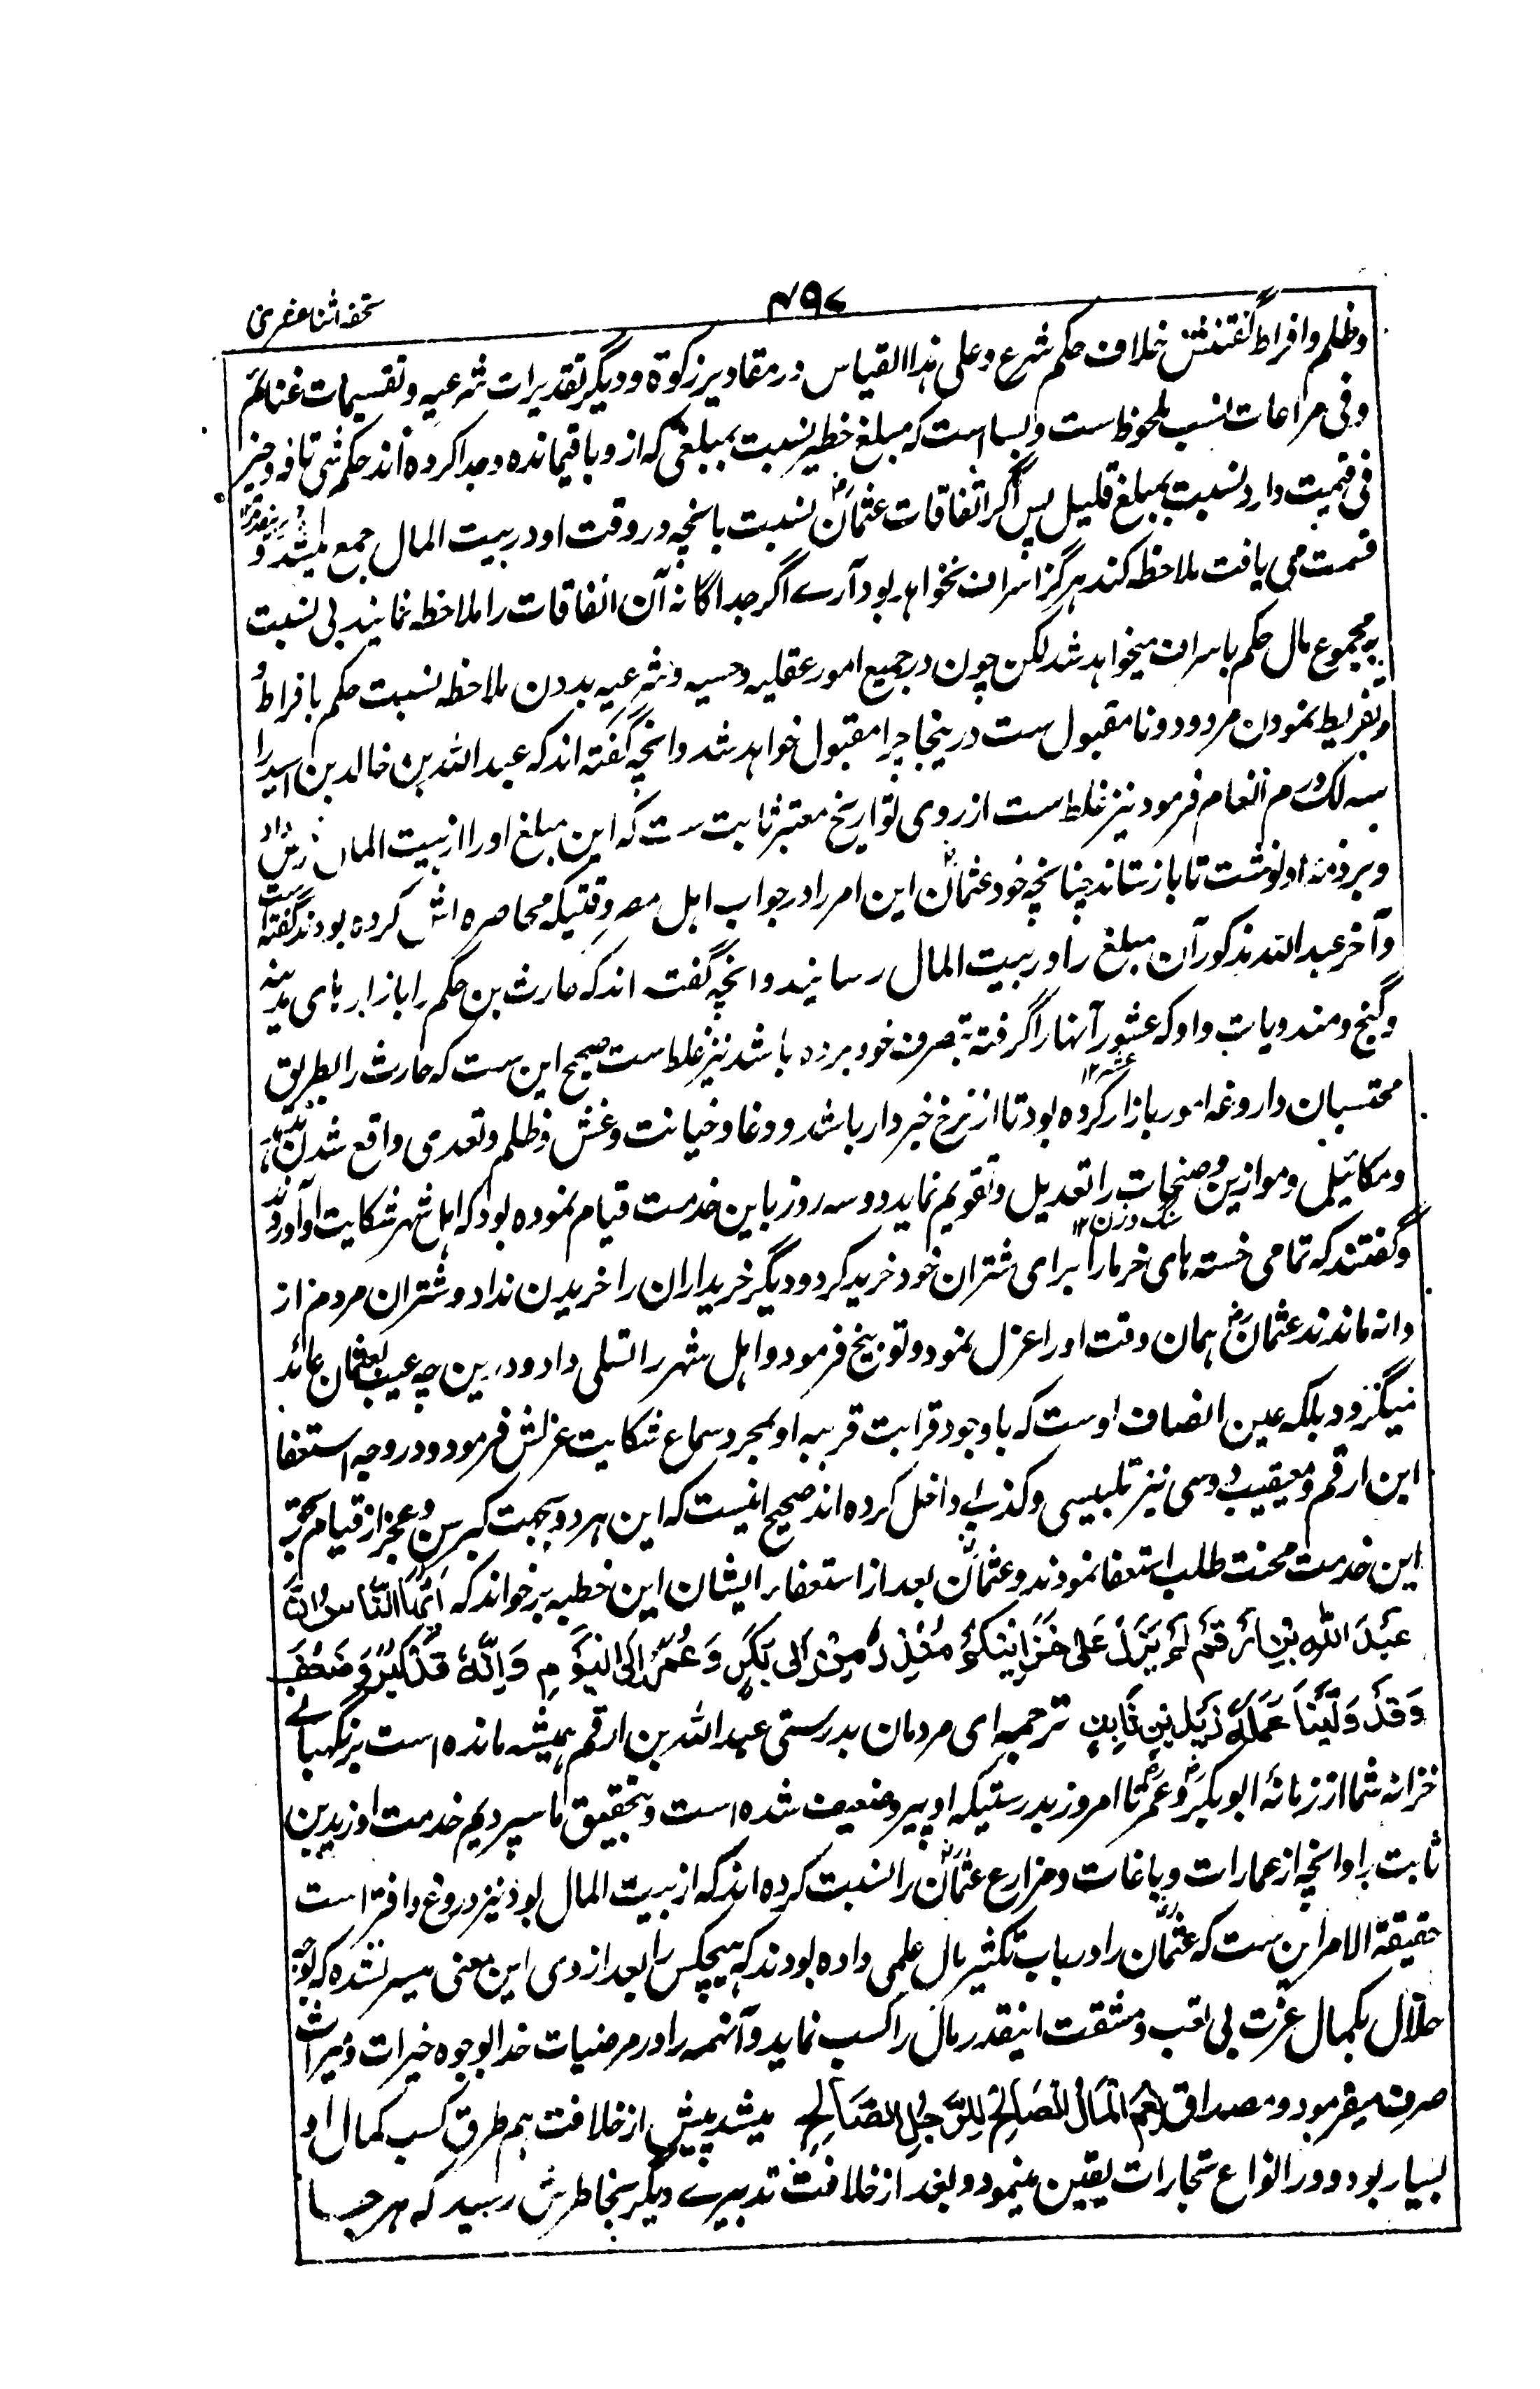 ۴۹۷
تحفه اثنا عشری
و ظلم و افراط گفتنش خلاف حکم شرع و علی هذا القیاس در مقادیر زکوة و دیگر تقدیرات شرعیه و تقسیمات غنائم
و فی مراعات نسب ملحوظ ست و بسا است که مبلغ خطیر نسبت بمبلغی که ازو باقیمانده و جدا کرده اند حکم شی تافه و چیز
فی قیمت دارد نسبت بمبلغ قلیل پس اگر انفاقات عثمانؓ نسبت بانچه در وقت او در بیت المال جمع میشد و
قسمت می یافت ملاحظه کند هرگز اسراف نخواهد بود آرے اگر جداگانه آن انفاقات را ملاحظه نمایند بی نسبت
به مجموع مال حکم باسراف میخواهد شد لکن چون در جمیع امور عقلیه و حسیه و شرعیه بدون ملاحظه نسبت حکم بافراط
و تفریط نمودن مردود و نامقبول ست درینجا چرا مقبول خواهد شد و انچه گفته اند که عبد الله بن خالد بن اسید را
سه لک درم انعام فرمود نیز غلط ست از روی تواریخ معتبر ثابت ست که این مبلغ او را از بیت المال قرض داد
و بر ذمه او نوشت تا باز ستاند چنانچه خود عثمانؓ این امر را در جواب اهل مصر وقتیکه محاصره اش کرده بودند گفته است
و آخر عبد الله مذکور آن مبلغ را در بیت المال رسانید و انچه گفته اند که حارث بن حکم را بازارهای مدینه
و گنج و مندویات داد که عشور آنها را گرفته بتصرف خود برده باشد نیز غلط ست صحیح این ست که حارث را بطریق
محتسبان داروغه امور بازار کرده بود تا از نرخ خبردار باشد و دغا و خیانت و غش و ظلم و تعدی واقع شدن ندهد
و مکائیل و موازین و صنجات را تعدیل و تقویم نماید دو سه روز باین خدمت قیام نموده بود که اهل شهر شکایت او آوردند
سنگ وزن ۱۲
و گفتند که تمامی خسته های خرما را برای شتران خود خرید کرد و دیگر خریداران را خریدن نداد و شتران مردم از
دانه ماندند عثمانؓ همان وقت او را عزل نمود و توبیخ فرمود و اهل شهر را تسلی داد و درین چه عیب بعثمان عائد
میگردد بلکه عین انصاف اوست که باوجود قرابت قریبه او بمجرد سماع شکایت عزلش فرمود و در وجه استعفا
ابن ارقم و معیقیب دوسی نیز تلبیسی و کذبے داخل کرده اند صحیح اینست که این هر دو بجهت کبر سن و عجز از قیام بحق
این خدمت محنت طلب استعفا نمودند و عثمانؓ بعد از استعفاء ایشان این خطبه برخواند که أَيُّهَا النَّاسُ إِنَّ
عَبْدَ اللهِ بْنِ أَرْقَمَ لَمْ يَزَلْ عَلَى خَزَائِنِكُمْ مُنْذُ زَمَنِ أَبِي بَكْرٍ وَعُمَرَ إِلَى الْيَوْمِ وَإِنَّهُ قَدْ كَبُرَ وَضَعُفَ
وَقَدْ وَلَّيْنَا عَمَلَهُ زَيْدَ بْنَ ثَابِتٍ ترجمه ای مردمان بدرستی عبد الله بن ارقم همیشه مانده است بر نگهبانے
خزانه شما از زمانۀ ابو بکرؓ و عمرؓ تا امروز بدرستیکه او پیر و ضعیف شده است و بتحقیق ما سپردیم خدمت او زید بن
ثابت را و انچه از عمارات و باغات و مزارع عثمانؓ را نسبت کرده اند که از بیت المال بود نیز دروغ و افترا است
حقیقة الامر این ست که عثمانؓ را در باب تکثیر مال علمی داده بودند که هیچکس را بعد از وی این معنی میسر نشده که بوجه
حلال بکمال عزت بی تعب و مشقت اینقدر مال را کسب نماید و آنهمه را در مرضیات خدا بوجوه خیرات و مبرات
صرف میفرمود و مصداق نِعْمَ الْمَالُ الصَّالِحُ لِلرَّجُلِ الصَّالِحِ میشد پیش از خلافت هم طرق کسب کمال او
بسیار بود و در انواع تجارات یقین مینمود و بعد از خلافت تدبیرے دیگر بخاطرش رسید که هر جا